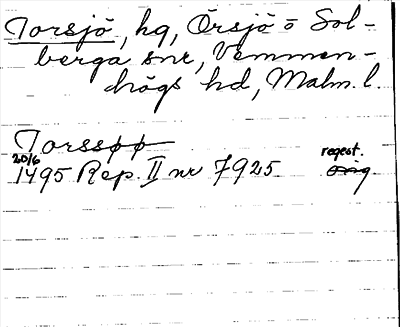 Torsjö, hg, Örsjö o Sol-
berga snr, Vemmen-
högs hd, Malm. l.
Torsspp
20/6 regest.
1495 Rep. II nr 7925 orig.